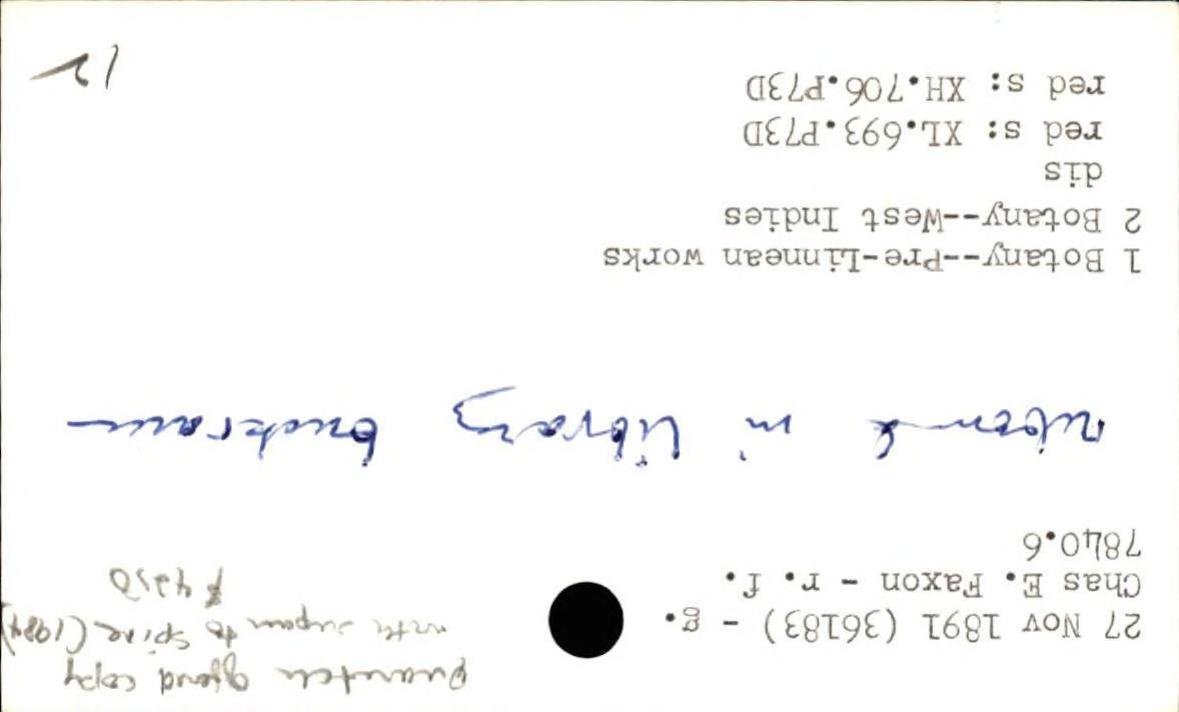 Quaritch offered copy
27 Nov 1891 (36183) - g.
with repair to spine (1984)
Chas E. Faxon - r. f.
$4250
7840.6
rebound in library buckram
1 Botany--Pre-Linnean works
2 Botany--West Indies
dis
red s: XL.693.P73D
red s: XH.706.P73D
12